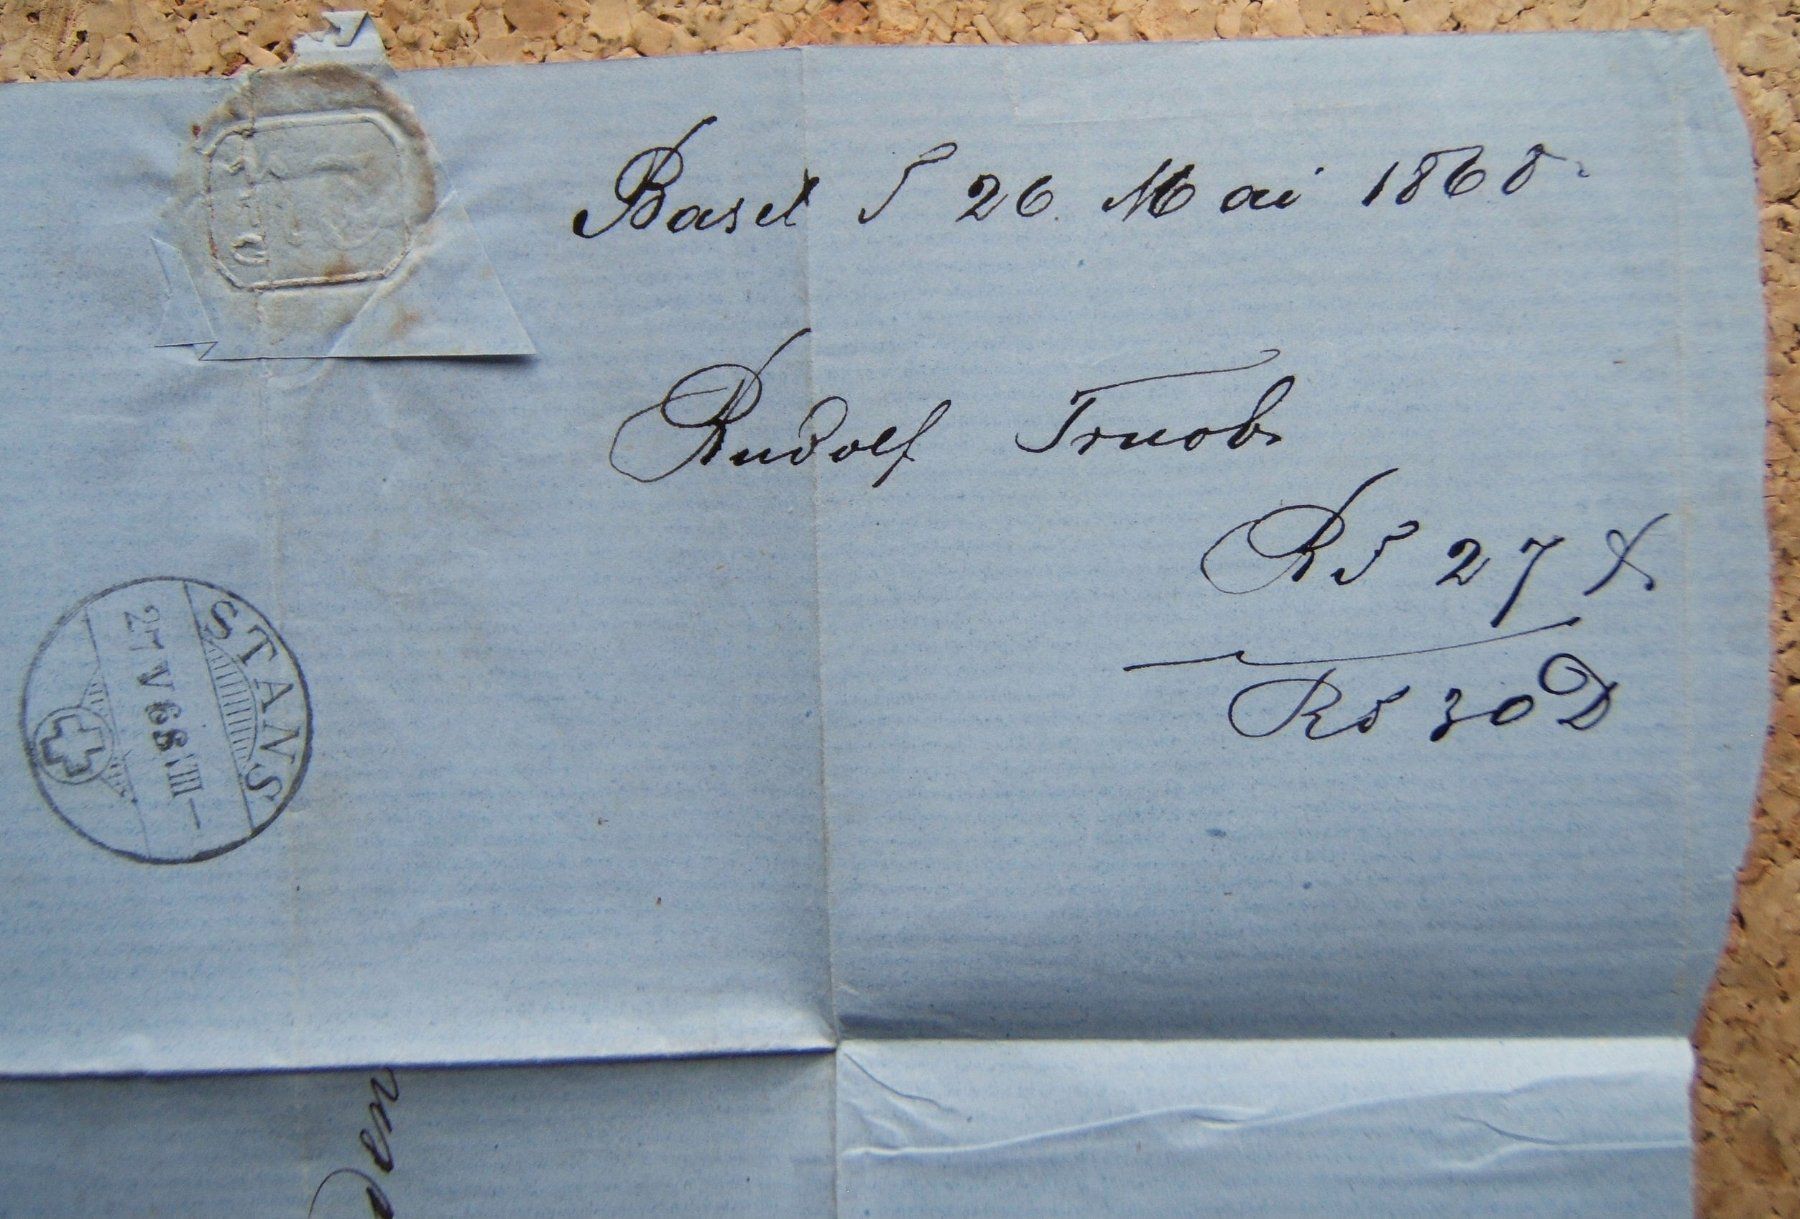 Basel d 26 Mai 1868.
Rudolf Truob
Rd 27 d
Rd 30 D
STANS
27 V 68 VIII –
den